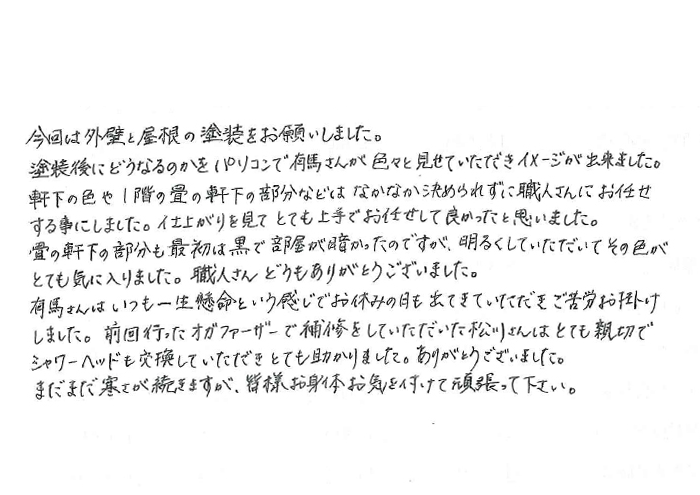 今回は外壁と屋根の塗装をお願いしました。
塗装後にどうなるのかをパソコンで有馬さんが色々と見せていただきイメージが出来ました。
軒下の色や1階の畳の軒下の部分などはなかなか決められずに職人さんにお任せ
する事にしました。仕上がりを見てとても上手でお任せして良かったと思いました。
畳の軒下の部分も最初は黒で部屋が暗かったのですが、明るくしていただいてその色が
とても気に入りました。職人さんどうもありがとうございました。
有馬さんはいつも一生懸命という感じでお休みの日も出てきていただきご苦労お掛け
しました。前回行ったオガファーザーで補修をしていただいた松川さんはとても親切で
シャワーヘッドも交換していただきとても助かりました。ありがとうございました。
まだまだ寒さが続きますが、皆様お身体お気を付けて頑張って下さい。